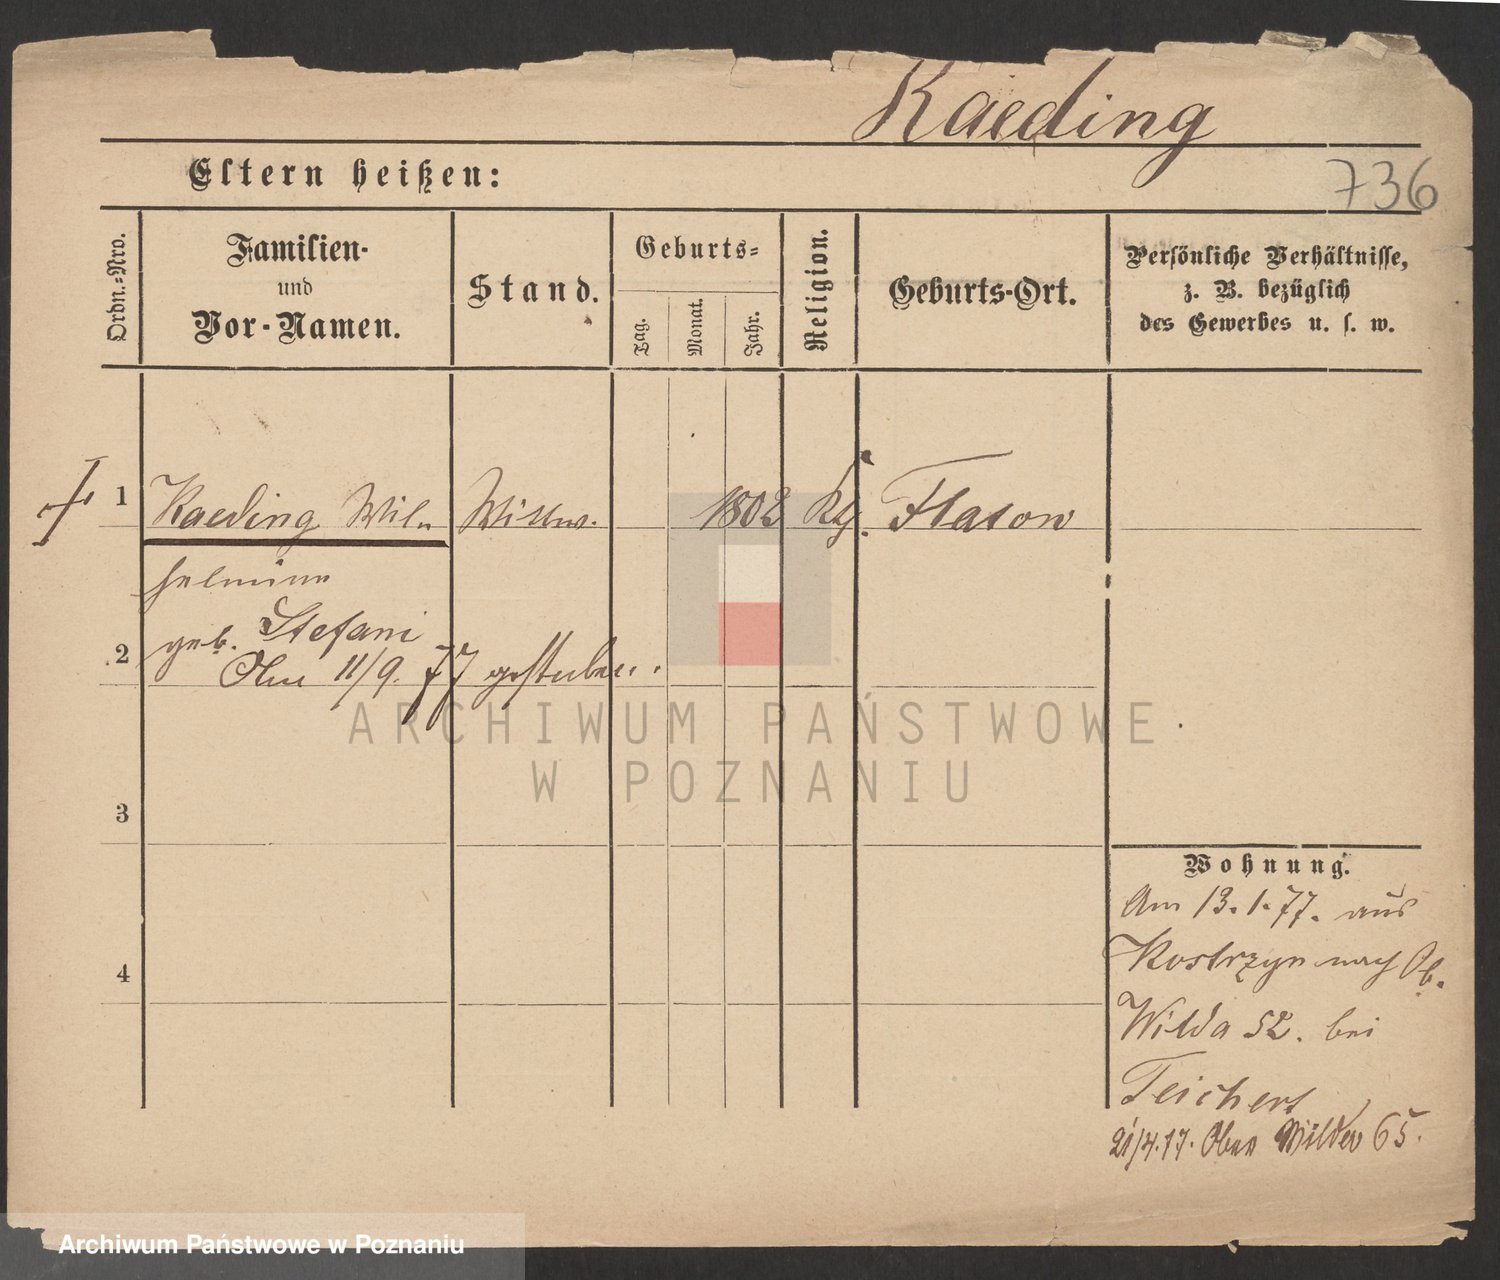 Kaeding
736
Eltern heißen:
Ordn.-Nro.
Familien-
und
Vor-Namen.
Stand.
Geburts-
Tag.
Monat.
Jahr.
Religion.
Geburts-Ort.
Persönliche Verhältnisse,
z. B. bezüglich
des Gewerbes u. s. w.
1 Kaeding Wil- Wittw. 1802 Flatow
helmine
geb. Stefani
2 11/9. 77 gestorben.
3
4
Wohnung.
Am 13.1.77. aus
Kostrzyn nach Ob.
Wilda 52. bei
Teichert
21/4.77. Ober Wilda 65.
ARCHIWUM PAŃSTWOWE
W POZNANIU
Archiwum Państwowe w Poznaniu